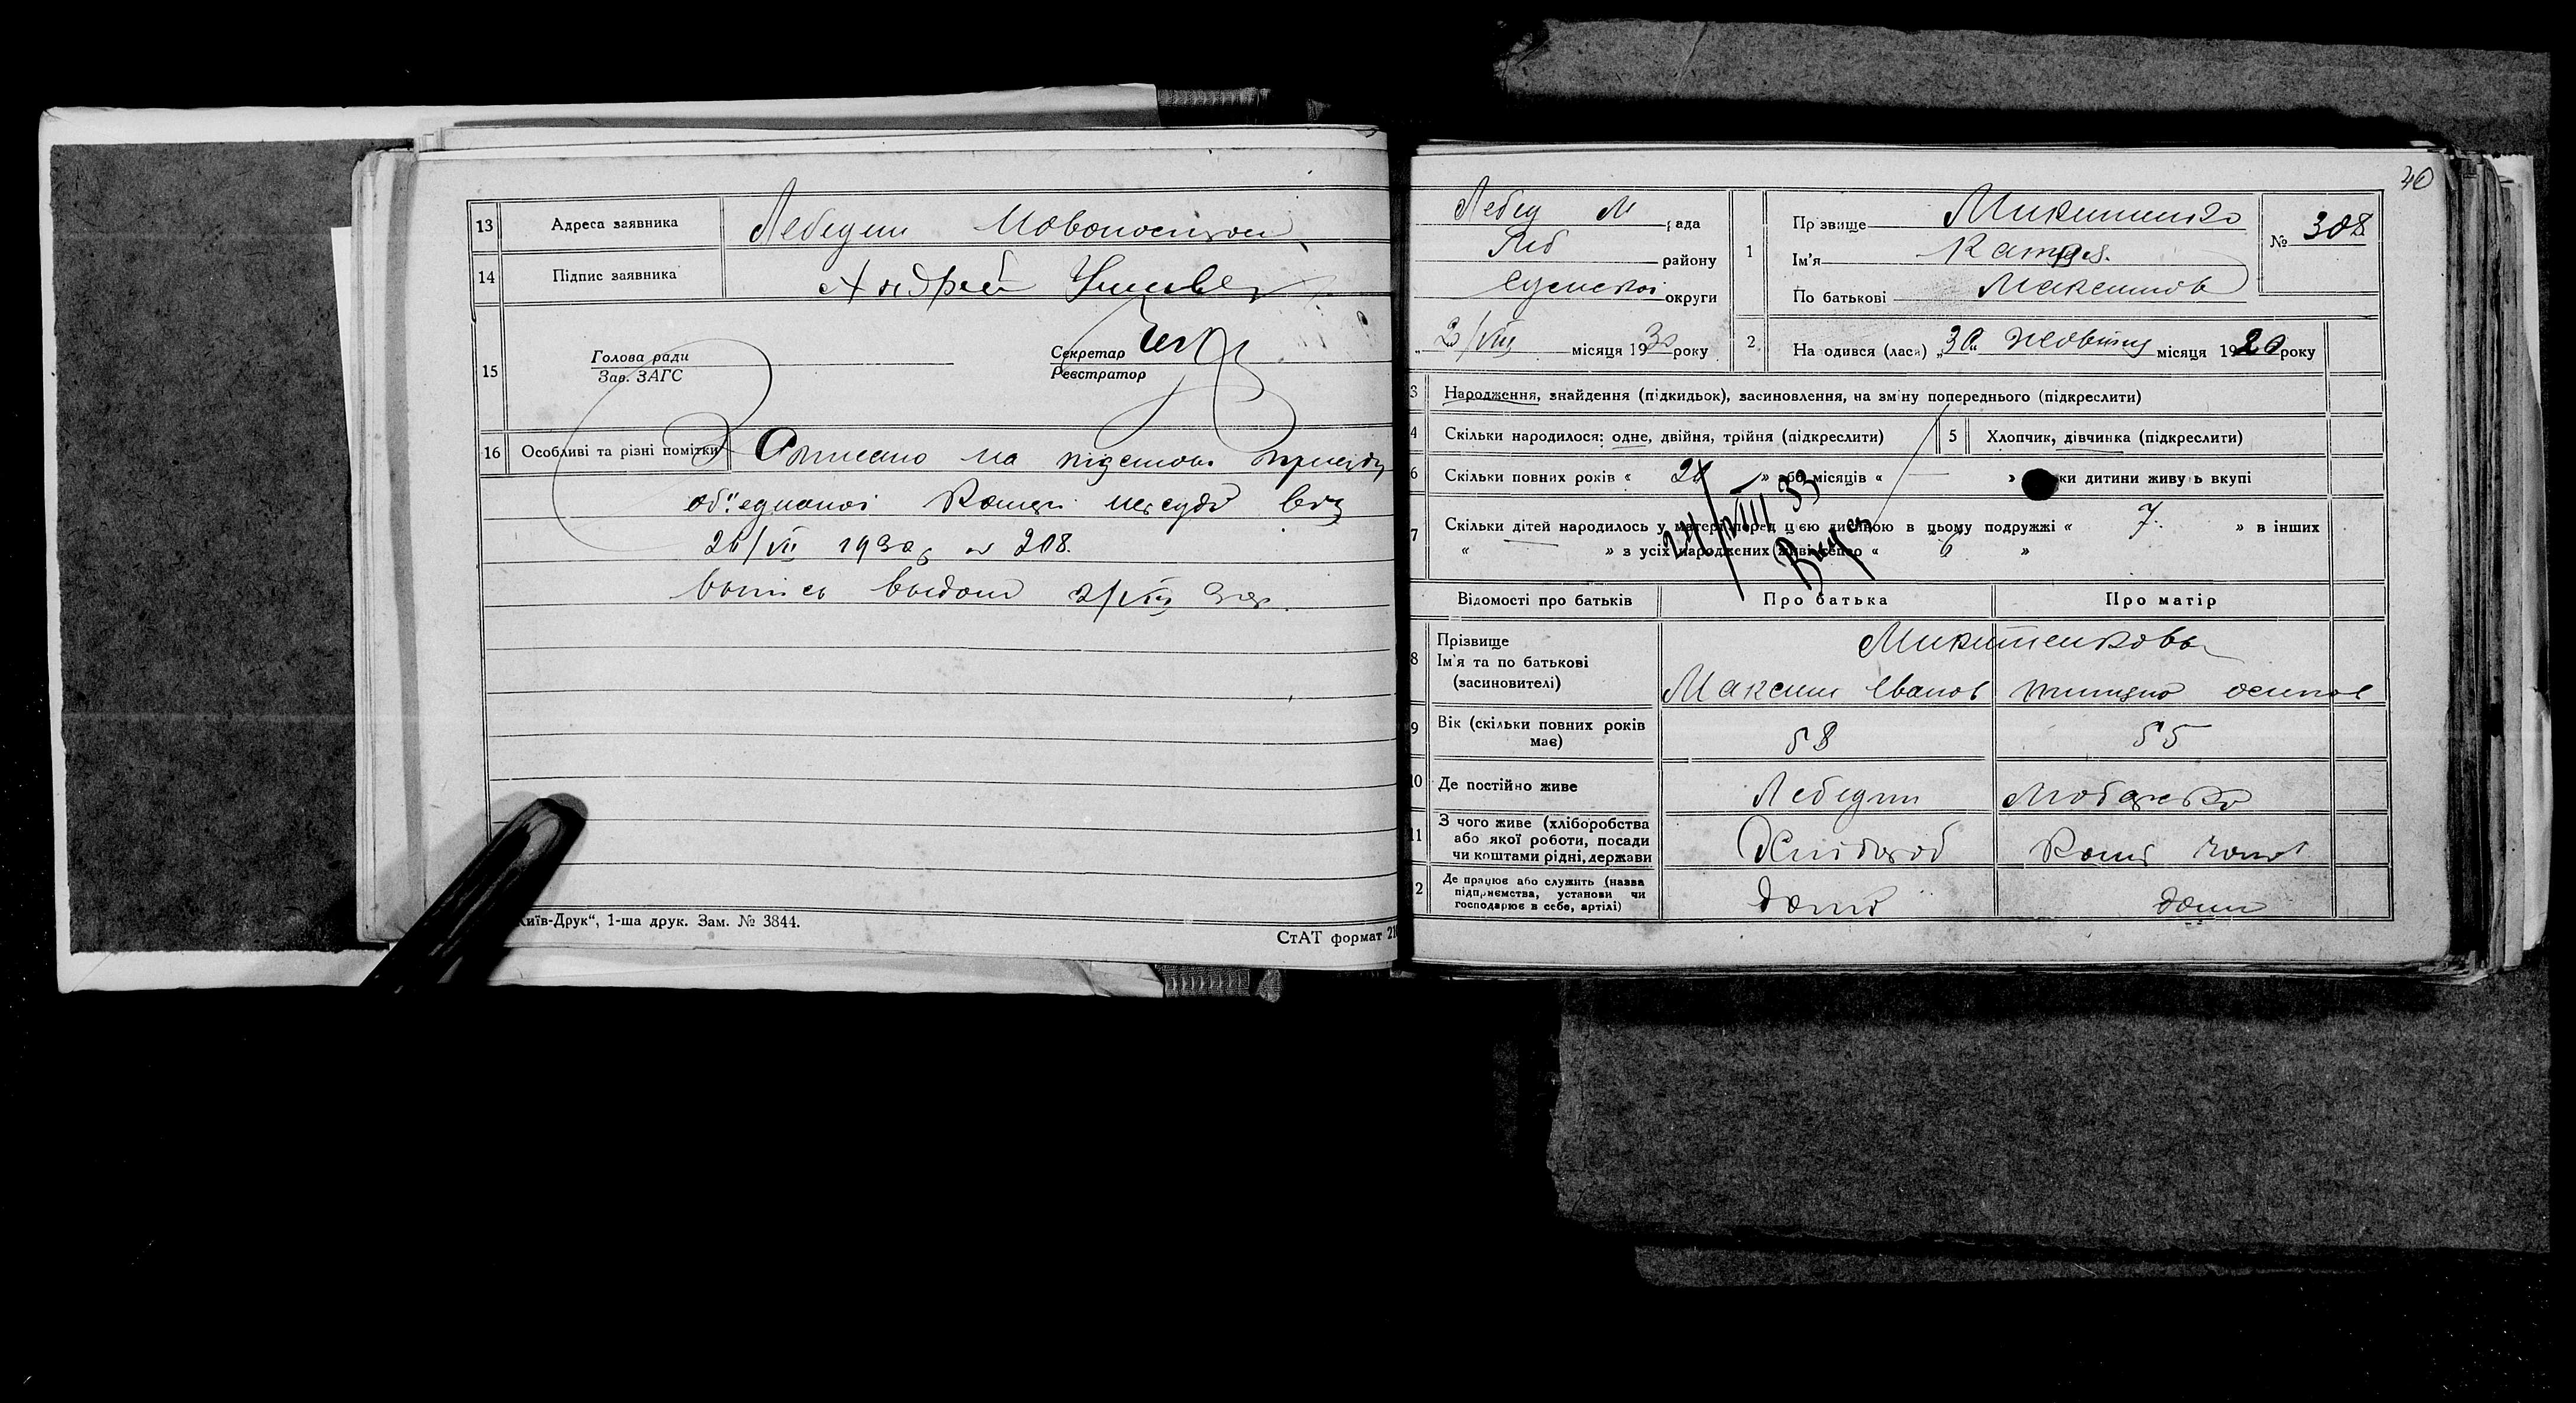 13 Адреса заявника Лебедин
14 Підпис заявника Андрей
15 Голова ради
Зав. ЗАГС
Секретар
Реєстратор
16 Особливі та різні помітки на підставі
об'єднаної від
26/VII 1930 № 208.
выпись 2/VIII 30
Київ-Друк“, 1-ша друк. Зам. № 3844.
СтАТ формат
40
Лебед М рада
Леб району
Сумської округи
„ 2/VIII місяця 1930 року
1 Прізвище
Ім'я
По батькові Максимов
№ 308
2 На одився (лася) „30“ жовтня місяця 1920 року
3 Народження, знайдення (підкидьок), засиновлення, на зміну попереднього (підкреслити)
4 Скільки народилося: одне, двійня, трійня (підкреслити)
5 Хлопчик, дівчинка (підкреслити)
6 Скільки повних років « » або місяців « — » ки дитини живуь вкупі
7 Скільки дітей народилось у матері перед цією дитиною в цьому подружжі « 7. » в інших
« » з усіх народжених живі тепер « 6 »
24/VIII 33
Відомості про батьків Про батька Про матір
8 Прізвище
Ім'я та по батькові
(засиновителі)
Микитенковы
Максим Іванов осипов
9 Вік (скільки повних років
має)
58 55
10 Де постійно живе Лебедин
11 З чого живе (хліборобства
або якої роботи, посади
чи коштами рідні, держави
Хлібороб
12 Де працює або служить (назва
підприємства, установи чи
господарює в себе, артілі)
дома дома